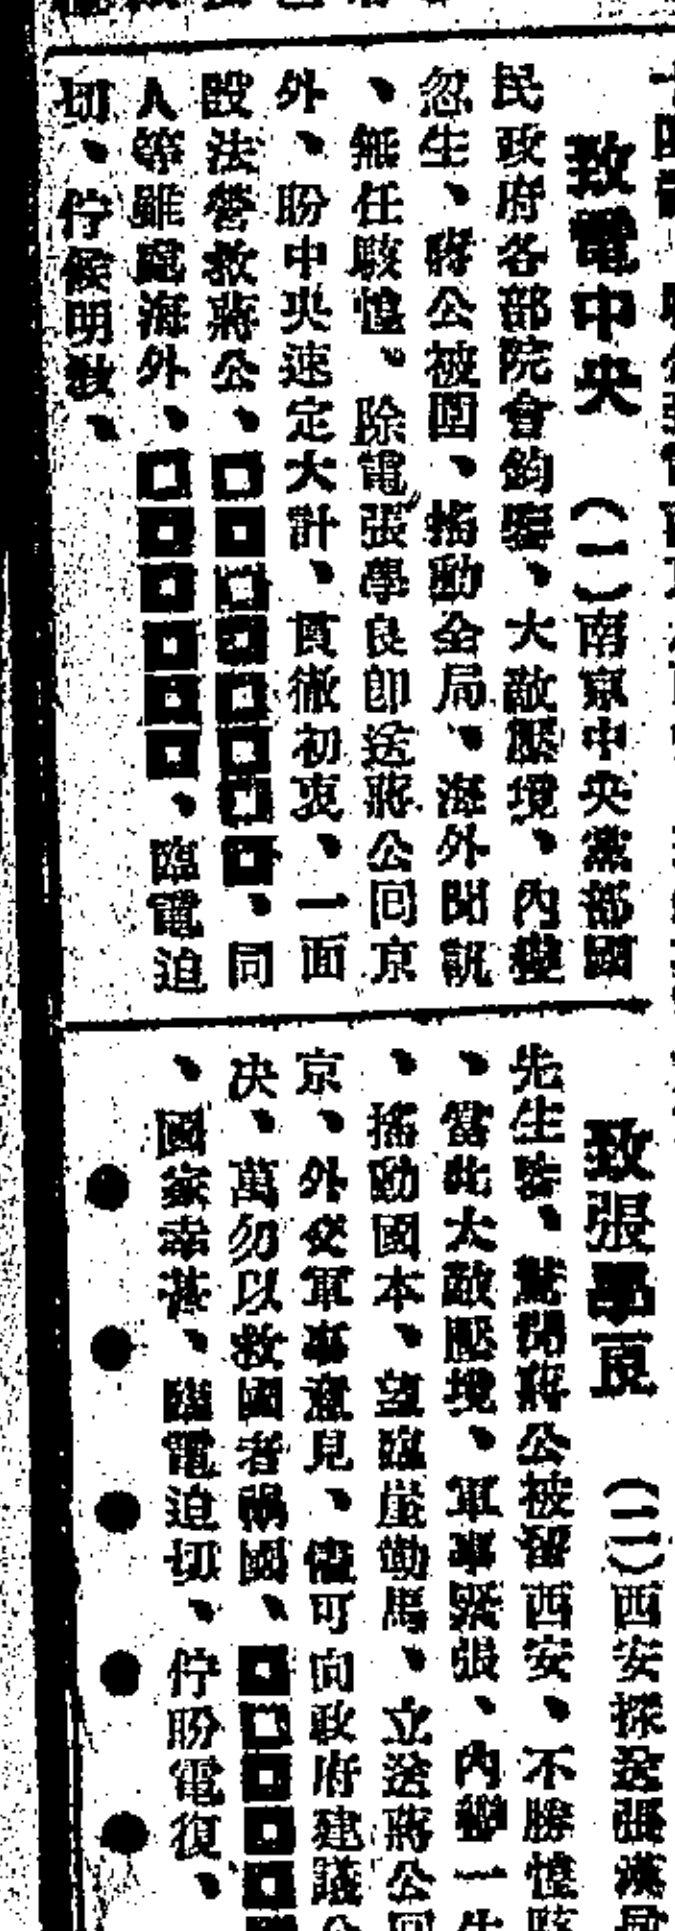 致電中央　（一）南京中央黨部國
民政府各部院會鈞鑒、大敵壓境、內變
忽生、蔣公被圍、搖動全局、海外聞訊
、無任駭惶、除電張學良卽送蔣公囘京
外、盼中央速定大計、貫徹初衷、一面
設法營救蔣公、□□□□□□□□、同
人等雖處海外、□□□□□□、臨電迫
切、佇候明敎、
致張學良　（二）西安探送張漢卿
先生鑒、驚聞蔣公被留西安、不勝惶駭
、當此大敵壓境、軍事緊張、內變一生
、搖動國本、望臨崖勒馬、立送蔣公囘
京、外交軍事意見、儘可向政府建議公
决、萬勿以救國者禍國、□□□□□
、國家幸甚、臨電迫切、佇盼電復、